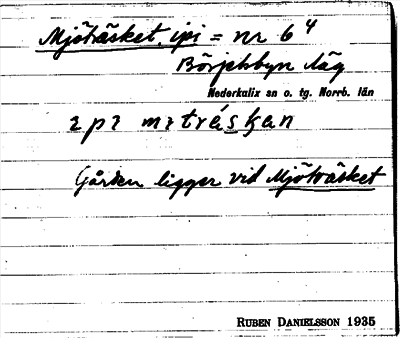 Mjöträsket, ipi = nr 6⁴
Börjelsbyn läg
Nederkalix sn o. tg. Norrb. län
ɩpɩ mɩtráskan
Gården ligger vid Mjöträsket
RUBEN DANIELSSON 1935